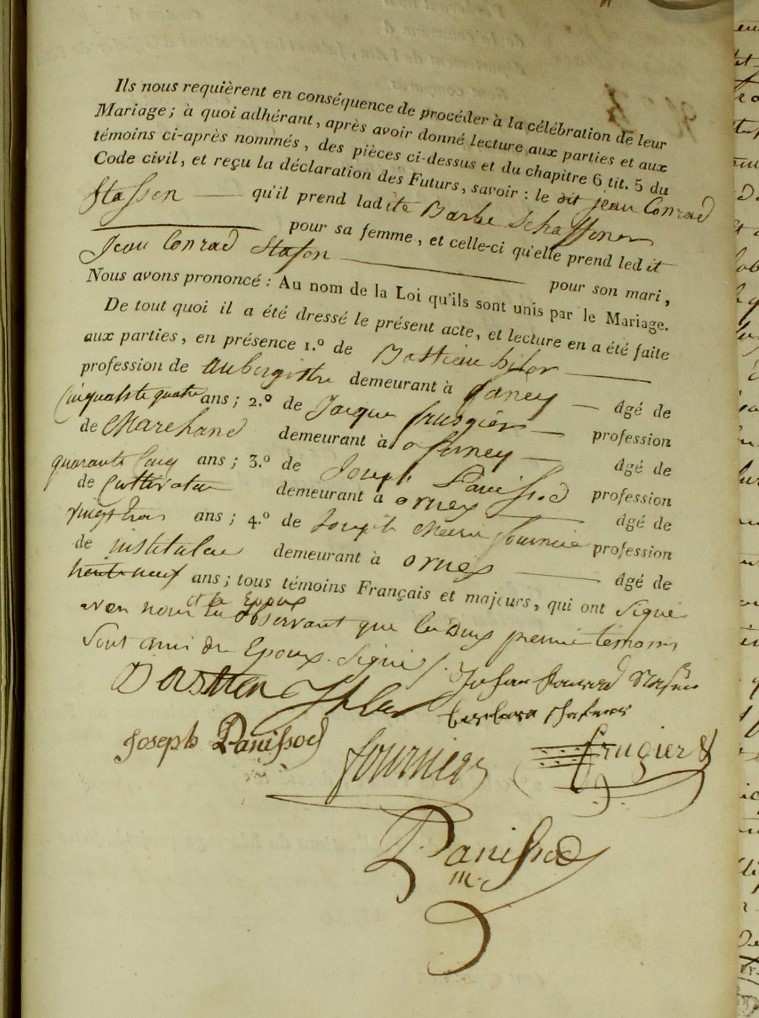 Ils nous requièrent en conséquence de procéder à la célébration de leur
Mariage; à quoi adhérant, après avoir donné lecture aux parties et aux
témoins ci-après nommés, des pièces ci-dessus et du chapitre 6 tit. 5 du
Code civil, et reçu la déclaration des Futurs, savoir : le dit jean Conrad
Stassen qu'il prend ladite Barbe Schaffener
pour sa femme, et celle-ci qu'elle prend ledit
Jean Conrad Stasen pour son mari,
Nous avons prononcé : Au nom de la Loi qu'ils sont unis par le Mariage.
De tout quoi il a été dressé le présent acte, et lecture en a été faite
aux parties, en présence 1.º de Bastien
profession de aubergiste demeurant à âgé de
Cinquante quatre ans; 2.º de Jacque profession
de Marchand demeurant à ferney âgé de
quarante Cinq ans; 3.º de Joseph Panissod profession
de Cultivateur demeurant à ornex âgé de
vingt trois ans; 4.º de Joseph Marie fournier profession
de instituteur demeurant à ornex âgé de
trente neuf ans; tous témoins Français et majeurs, qui ont signé
avec nous et les Epoux observant que les Deux premier témoins
Sont amis des Epoux. Signé
Bastien
Joseph Panissod
fournier
frugier
Panissod
m.